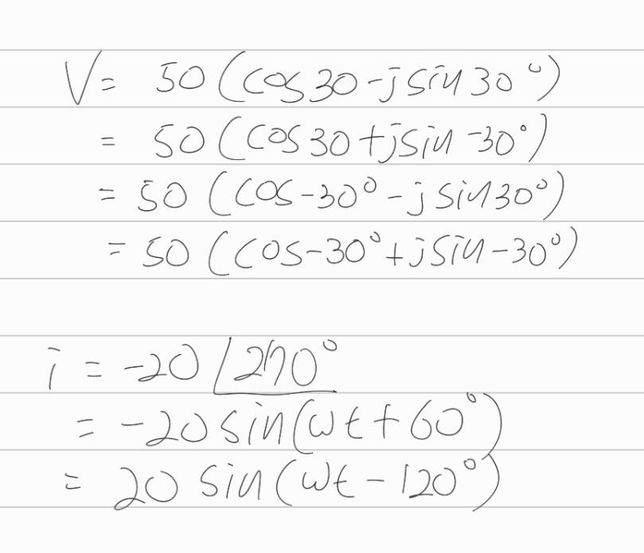 V = 50 (cos 30 - j sin 30°)
= 50 (cos 30 + j sin -30°)
= 50 (cos -30° - j sin 30°)
= 50 (cos -30° + j sin -30°)
i = -20 ∠270°
= -20 sin(ωt + 60°)
= 20 sin(ωt - 120°)